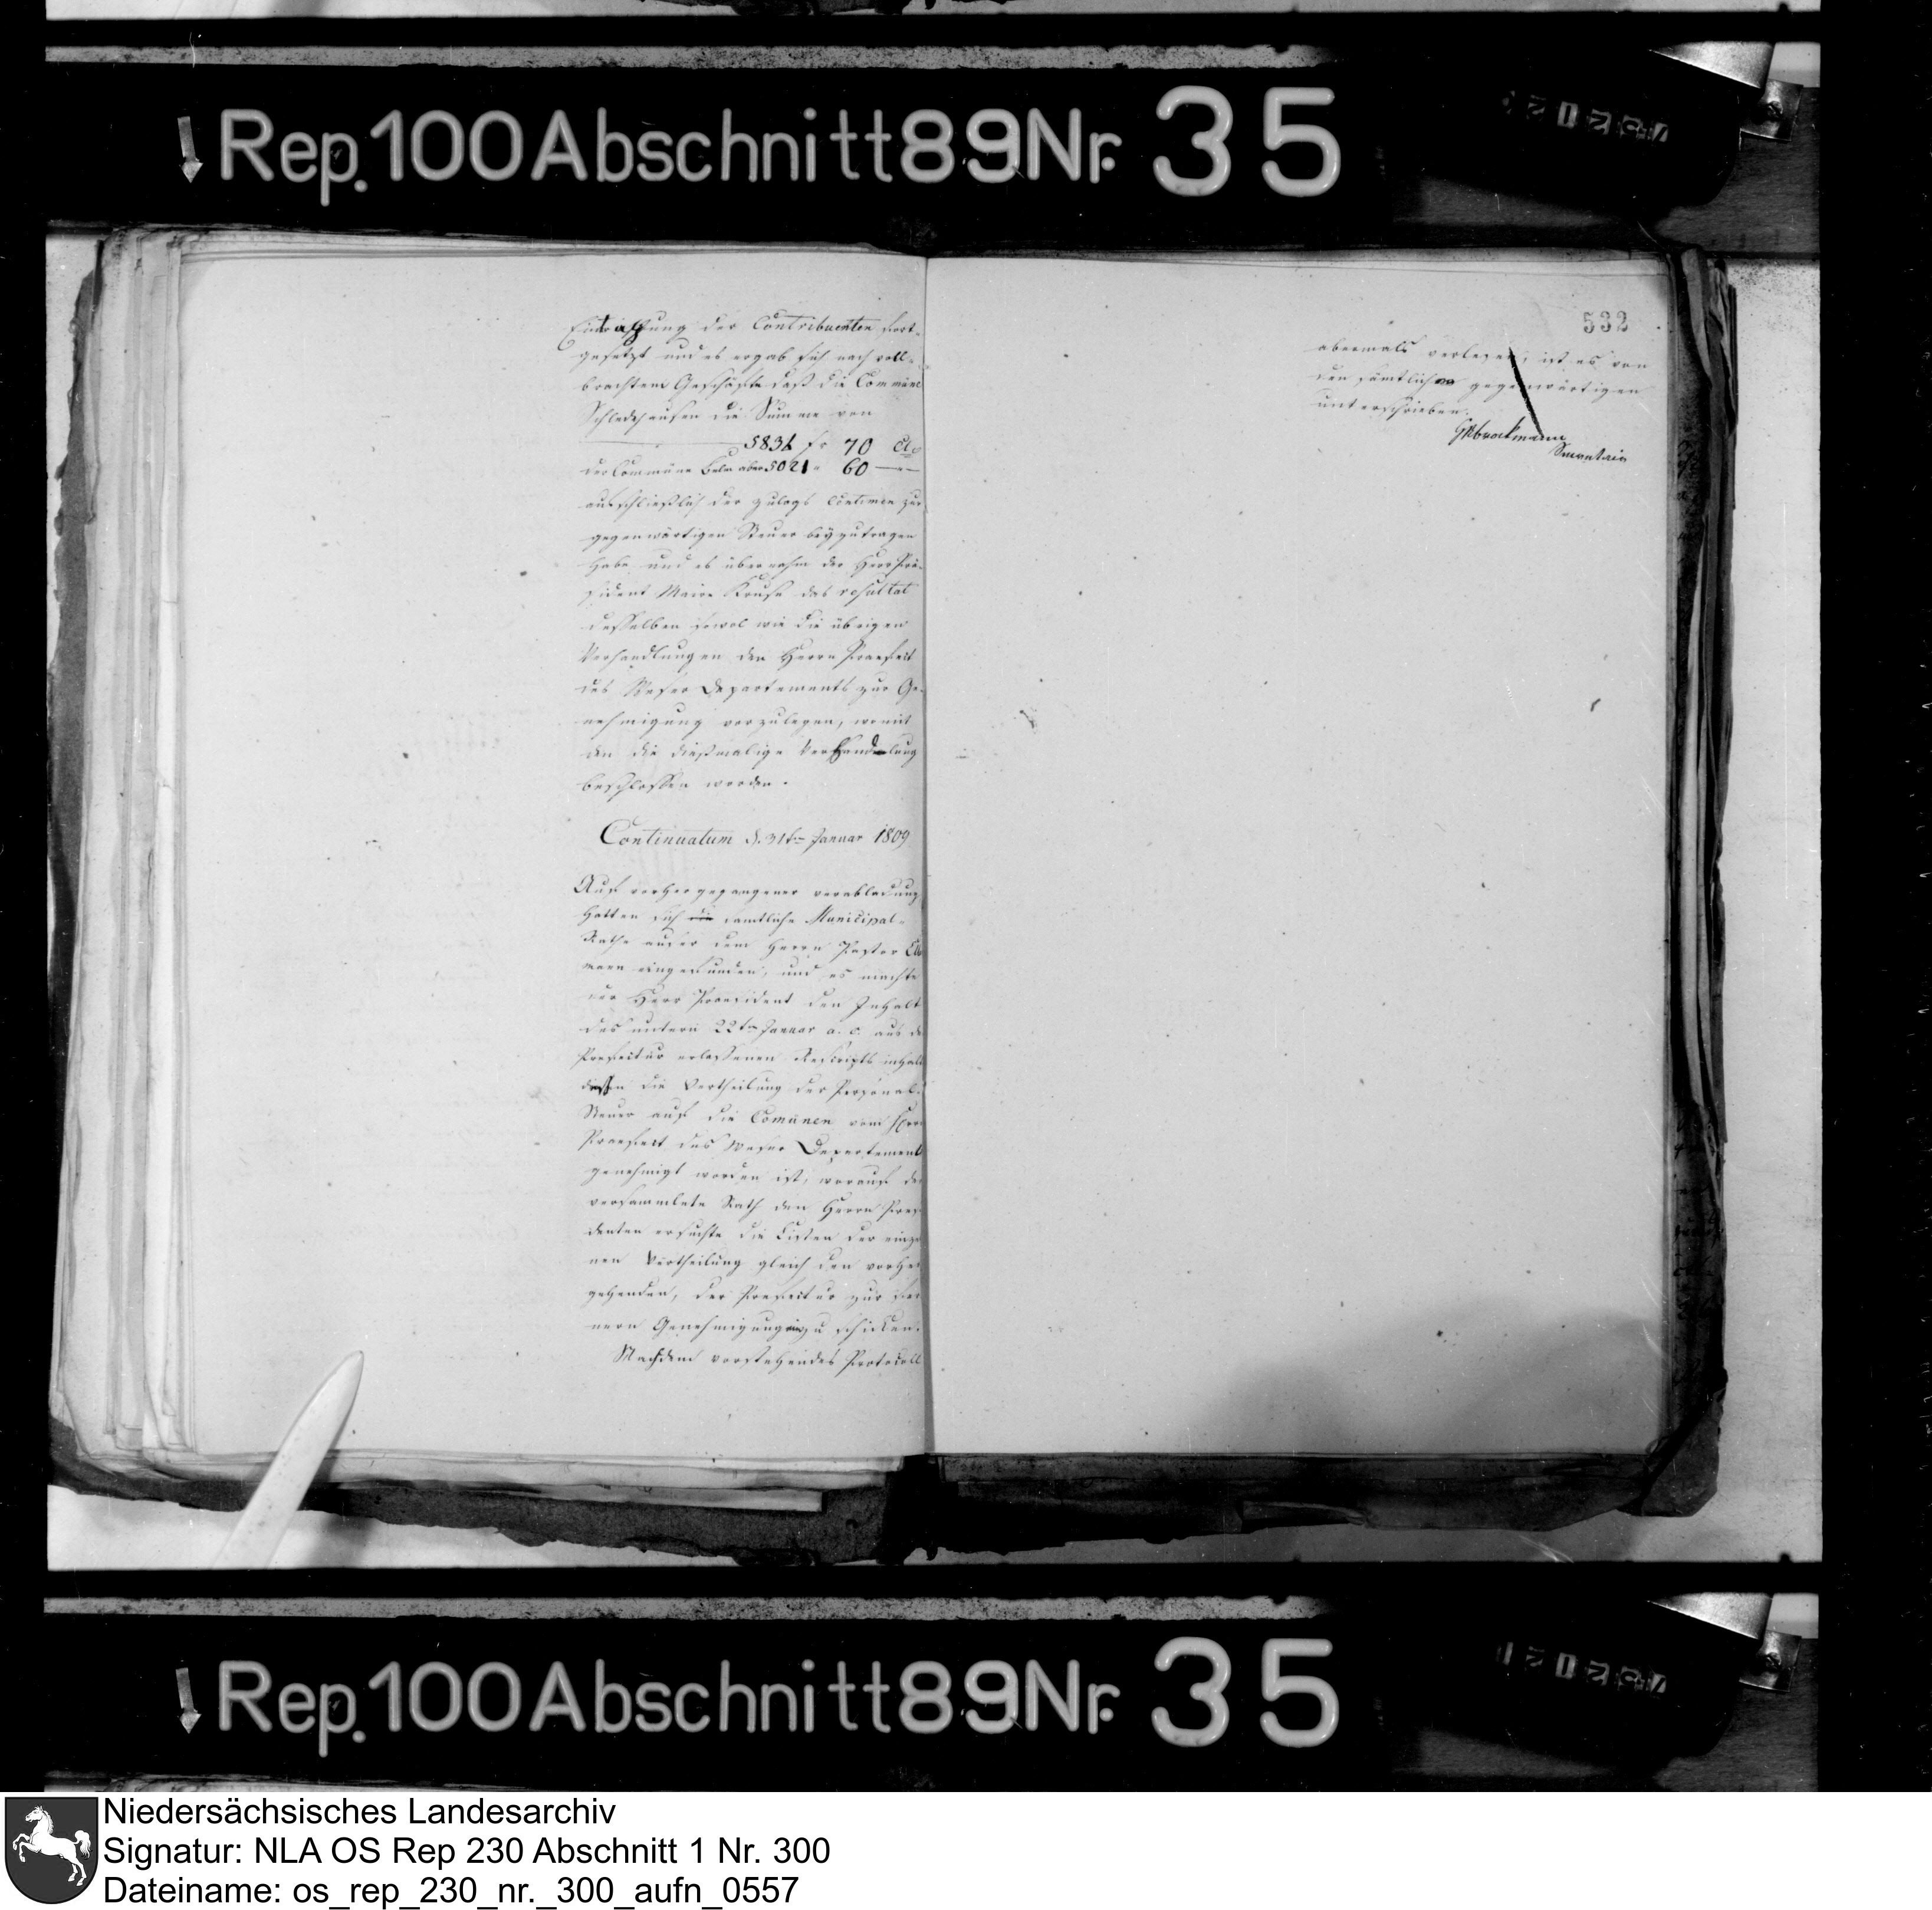 Rep. 100 Abschnitt 89 Nr. 35
der Contribuenten fort-
gesetzt und es ergab sich nach voll-
brachtem Geschäfte daß die Commüne
Schledehausen die Summe von
5831 fr 70 Ct
der Commüne Belm aber 5021 " 60 — " —
ausschließlich der zulags Centimen zur
gegenwärtigen Steuer beyzutragen
habe und es übernahm der Herr Prä-
sident Maire Kruse das resultat
desselben sowol wie die übrigen
Verhandlungen den Herrn Praefect
des Weser Departements zur Ge-
nehmigung vorzulegen, womit
den die diesmalige Verhandlung
beschlossen worden.
Continuatum d. 31ten Januar 1809
Auf vorhergegangener verabladung
hatten sich die sämtliche Municipal-
Räthe außer dem Herrn Pastor
mann eingefunden, und es machte
der Herr Praesident den Inhalt
des unterm 22ten Januar a. c. aus
Prefectur erlassenen Rescripts inhalt
dessen die Vertheilung der Personal-
Steuer auf die Comünen vom Herrn
Praefect des Weser Departement
genehmigt worden ist, worauf der
versammlete Rath den Herrn Presi
denten ersuchte die Listen der einzel
nen Vertheilung gleich den vorher
gehenden, der Prefectur zur fer
nern Genehmigung zu schicken.
Nachdem vorstehendes Protocoll
532
abermals verlesen, ist es von
den sämtlichen gegenwärtigen
unterschrieben.
Rep. 100 Abschnitt 89 Nr. 35
Niedersächsisches Landesarchiv
Signatur: NLA OS Rep 230 Abschnitt 1 Nr. 300
Dateiname: os_rep_230_nr._300_aufn_0557